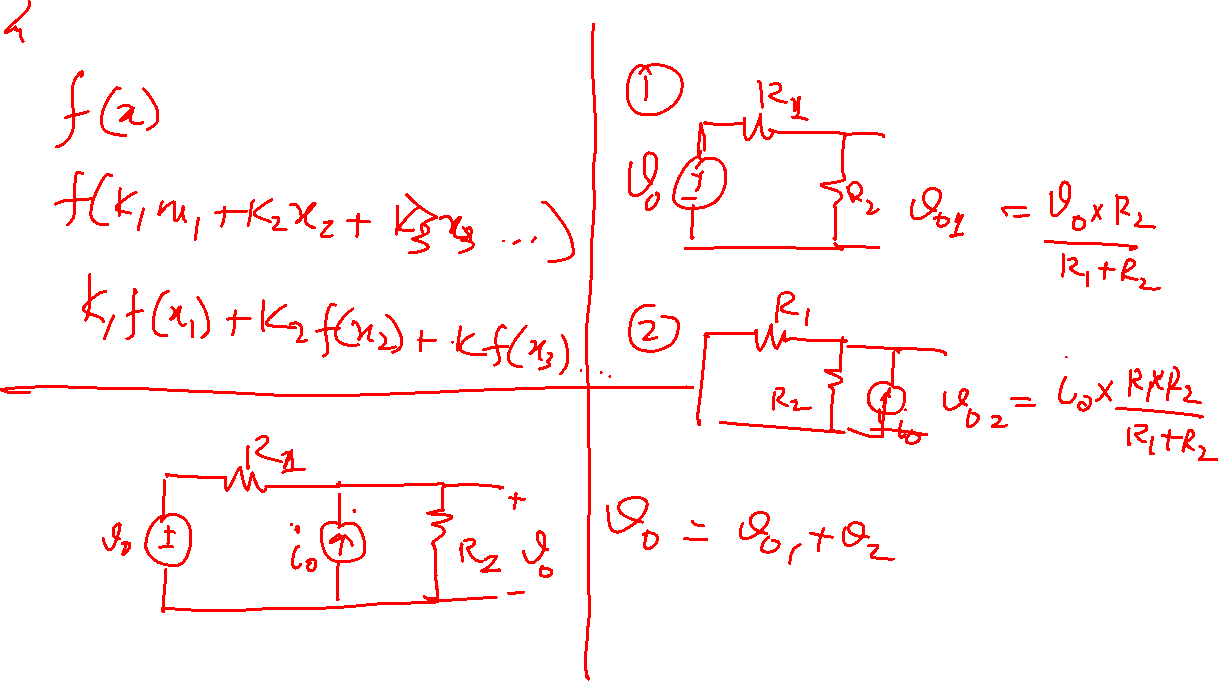 f(x)
f(K₁x₁ + K₂x₂ + K₃x₃ ...)
K₁f(x₁) + K₂f(x₂) + Kf(x₃)....
R₁
v₀
i₀
R₂
+
v₀
-
①
R₁
v₀
R₂
v₀₁ = v₀ × R₂ / R₁ + R₂
②
R₁
R₂
i₀
v₀₂ = i₀ × R₁×R₂ / R₁ + R₂
v₀ = v₀₁ + v₂